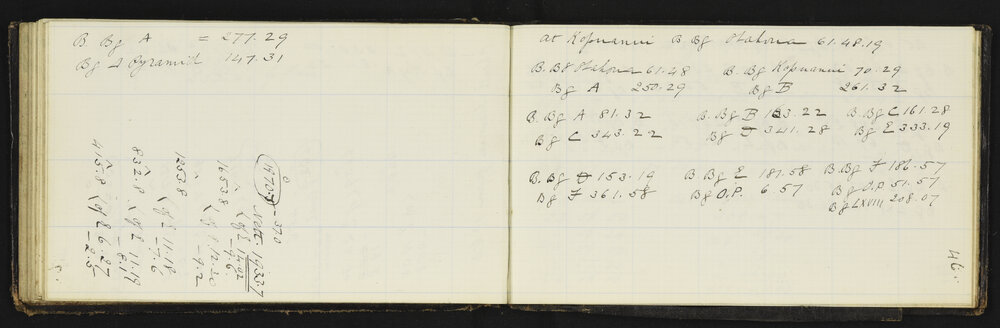 B. Bg A = 277.29
Bg Δ Pyramid 147.31
- 370
nett. 1933.7
1653.8
1253.8
832.8
415.8
at Kopuanui B. Bg Otahoua 61.48.19
B. Bg Otahoua 61.48 B. Bg Kopuanui 70.29
Bg A 250.29 Bg B 261.32
B. Bg A 81.32 B. Bg B 163.22 B. Bg C 161.28
Bg C 343.22 Bg D 341.28 Bg E 333.19
B. Bg D 153.19 B. Bg E 181.58 B. Bg F 186.57
Bg F 361.58 Bg O.P. 6.57 Bg O.P 51.57
Bg LXVIII 208.07
46.